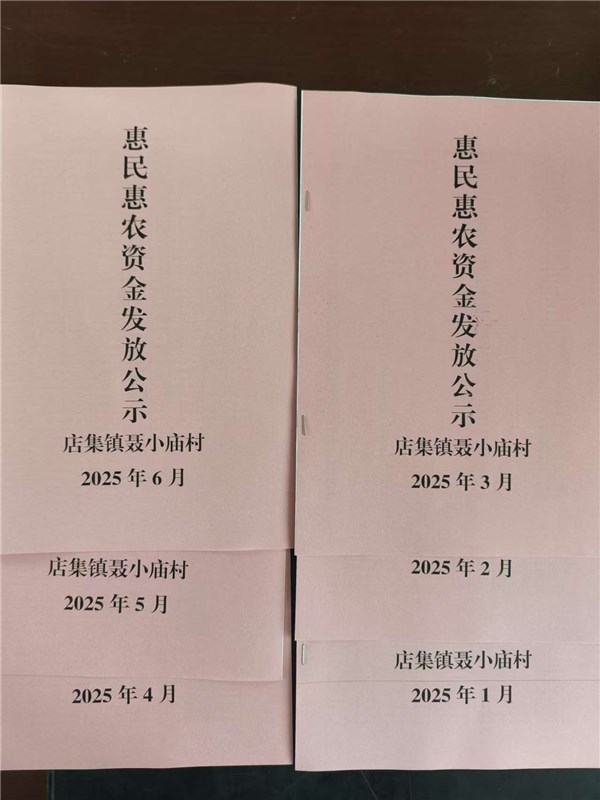 惠民惠农资金发放公示
店集镇聂小庙村
2025年6月
店集镇聂小庙村
2025年5月
2025年4月
惠民惠农资金发放公示
店集镇聂小庙村
2025年3月
2025年2月
店集镇聂小庙村
2025年1月